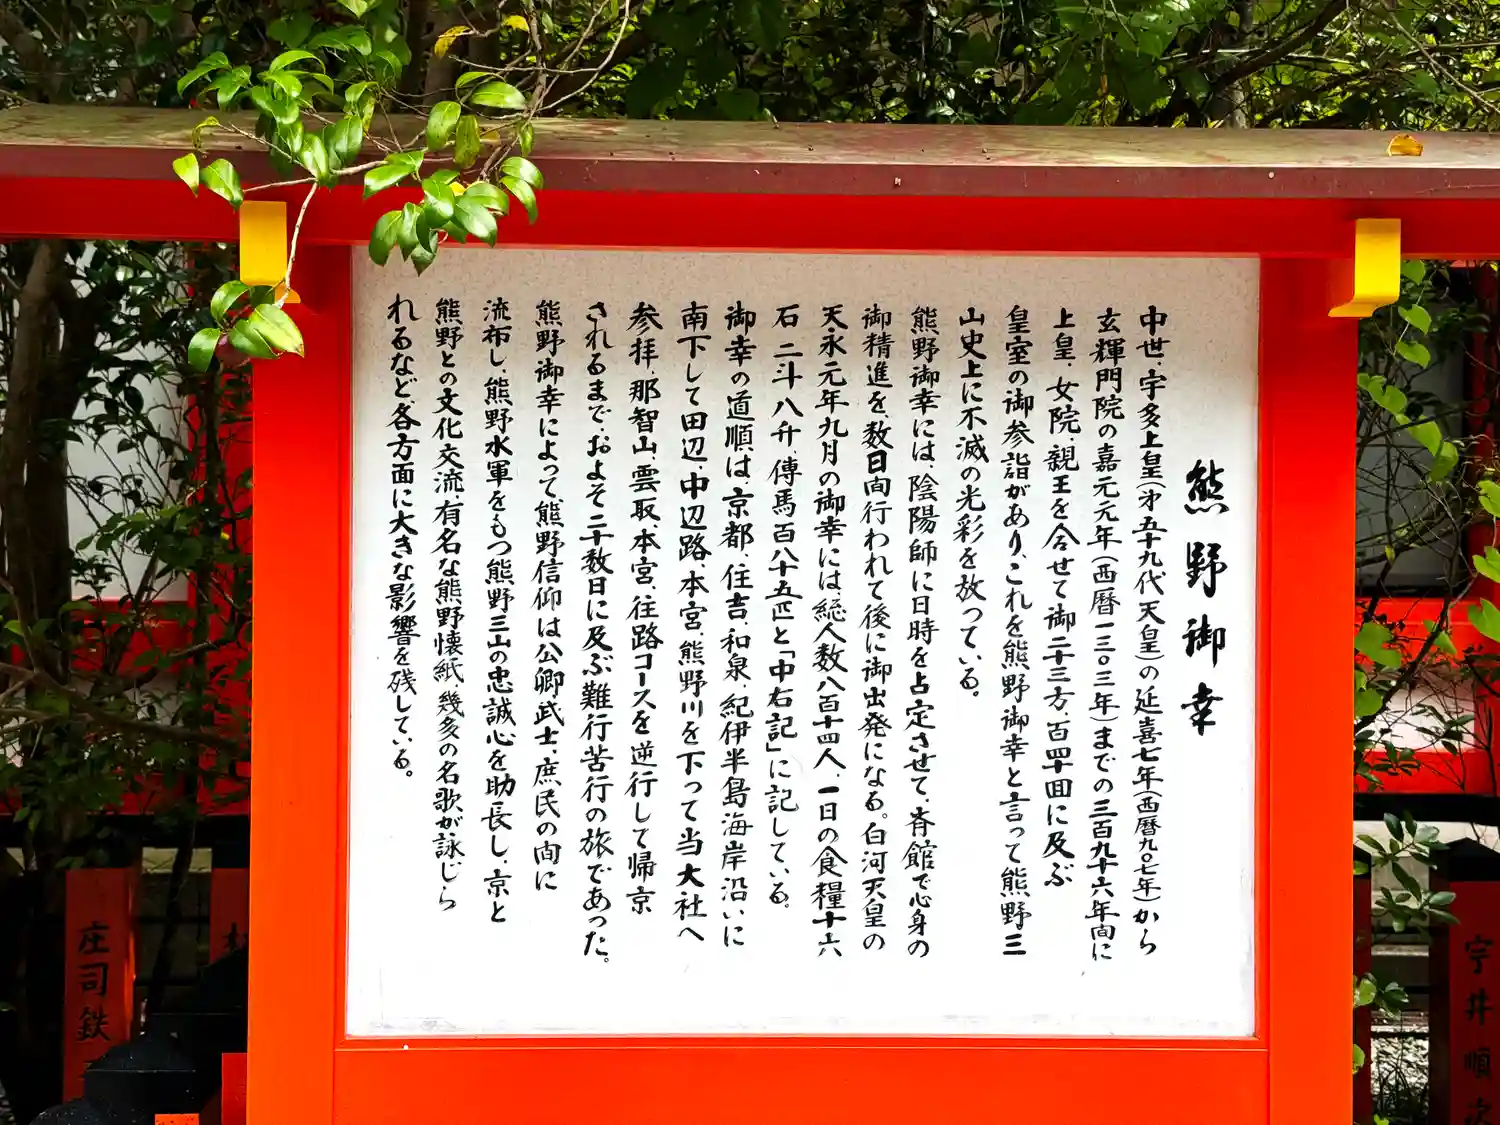 熊野御幸
中世、宇多上皇(第五十九代天皇)の延喜七年(西暦九〇七年)から
玄輝門院の嘉元元年(西暦一三〇三年)までの三百九十六年间に
上皇、女院、親王を合せて御二十三方、百四十回に及ぶ
皇室の御参詣があり、これを熊野御幸と言って熊野三
山史上に不滅の光彩を放っている。
熊野御幸には、陰陽師に日時を占定させて、斉館で心身の
御精進を、数日间行われて後に御出発になる。白河天皇の
天永元年九月の御幸には、総人数八百十四人、一日の食糧十六
石二斗八升、傳馬百八十五匹と「中右記」に記している。
御幸の道順は、京都、住吉、和泉、紀伊半島海岸沿いに
南下して田辺、中辺路、本宮、熊野川を下って当大社へ
参拝、那智山、雲取、本宮、往路コースを逆行して帰京
されるまで、およそ二十数日に及ぶ難行苦行の旅であった。
熊野御幸によって、熊野信仰は公卿、武士、庶民の间に
流布し、熊野水軍をもつ熊野三山の忠誠心を助長し、京と
熊野との文化交流、有名な熊野懐紙、幾多の名歌が詠じら
れるなど、各方面に大きな影響を残している。
庄司鉄
宇井順次